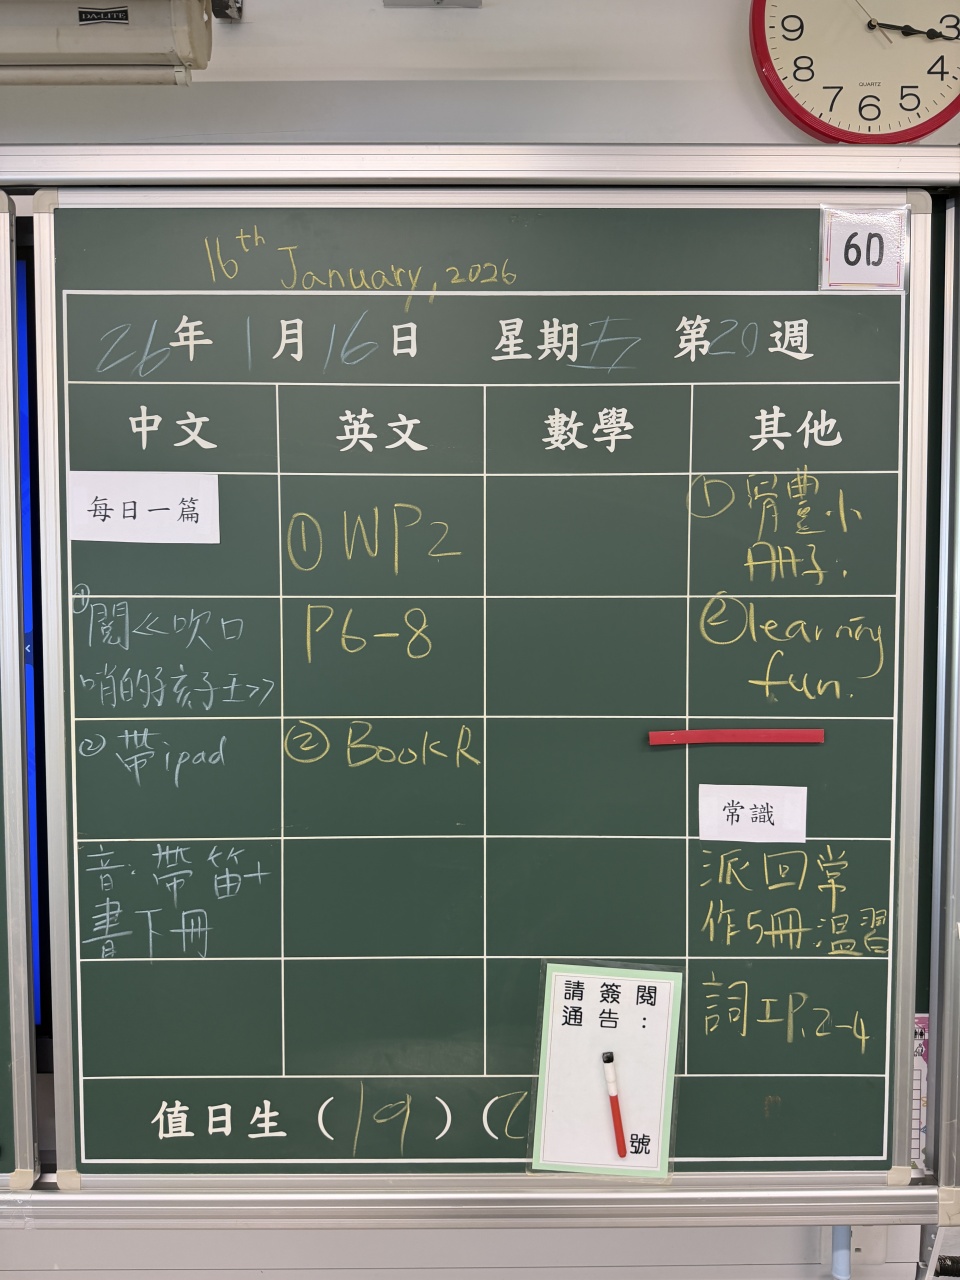 DA-LITE
9 3
8 4
7 6 5
QUARTZ
6D
16th January, 2026
26年 1月 16日 星期五 第20週
中文 英文 數學 其他
每日一篇
① WP2
① 體小
冊子.
①閱≪吹口
哨的孩子王>>
P6-8
② learning
fun.
② 帶ipad
② Book R
常識
音: 帶笛+
書下冊
派回常
作5冊溫習
詞工P.2-4
請簽閱
通告:
號
值日生(19)(2